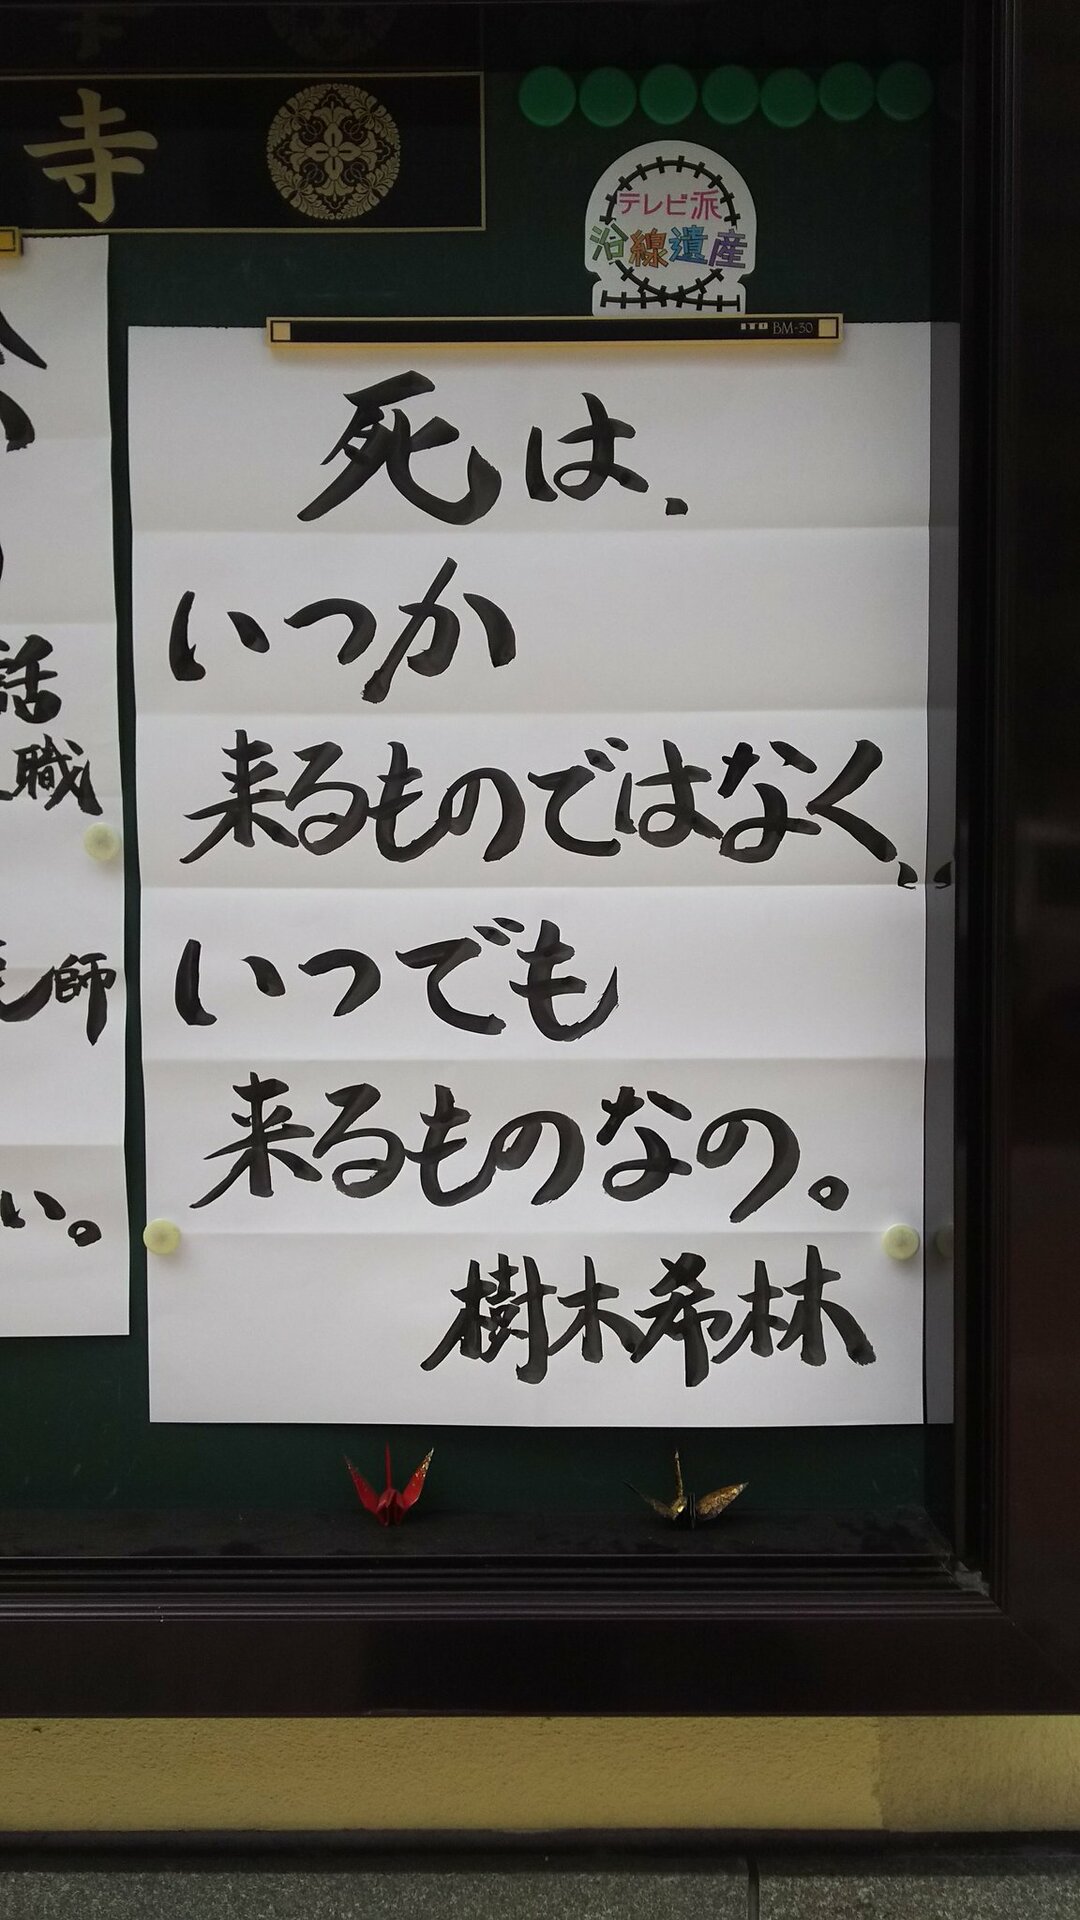 寺
テレビ派
沿線遺産
ITO BM-30
死は、
いつか
来るものではなく、
いつでも
来るものなの。
樹木希林
話
職
師
い。